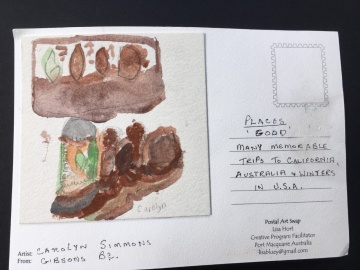 Carolyn
Artist: CAROLYN SIMMONS
From: GIBSONS BC.
PLACES
'GOOD'
MANY MEMORABLE
TRIPS TO CALIFORNIA,
AUSTRALIA & WINTERS
IN U.S.A.
Postal Art Swap
Lisa Hort
Creative Program Facilitator
Port Macquarie Australia